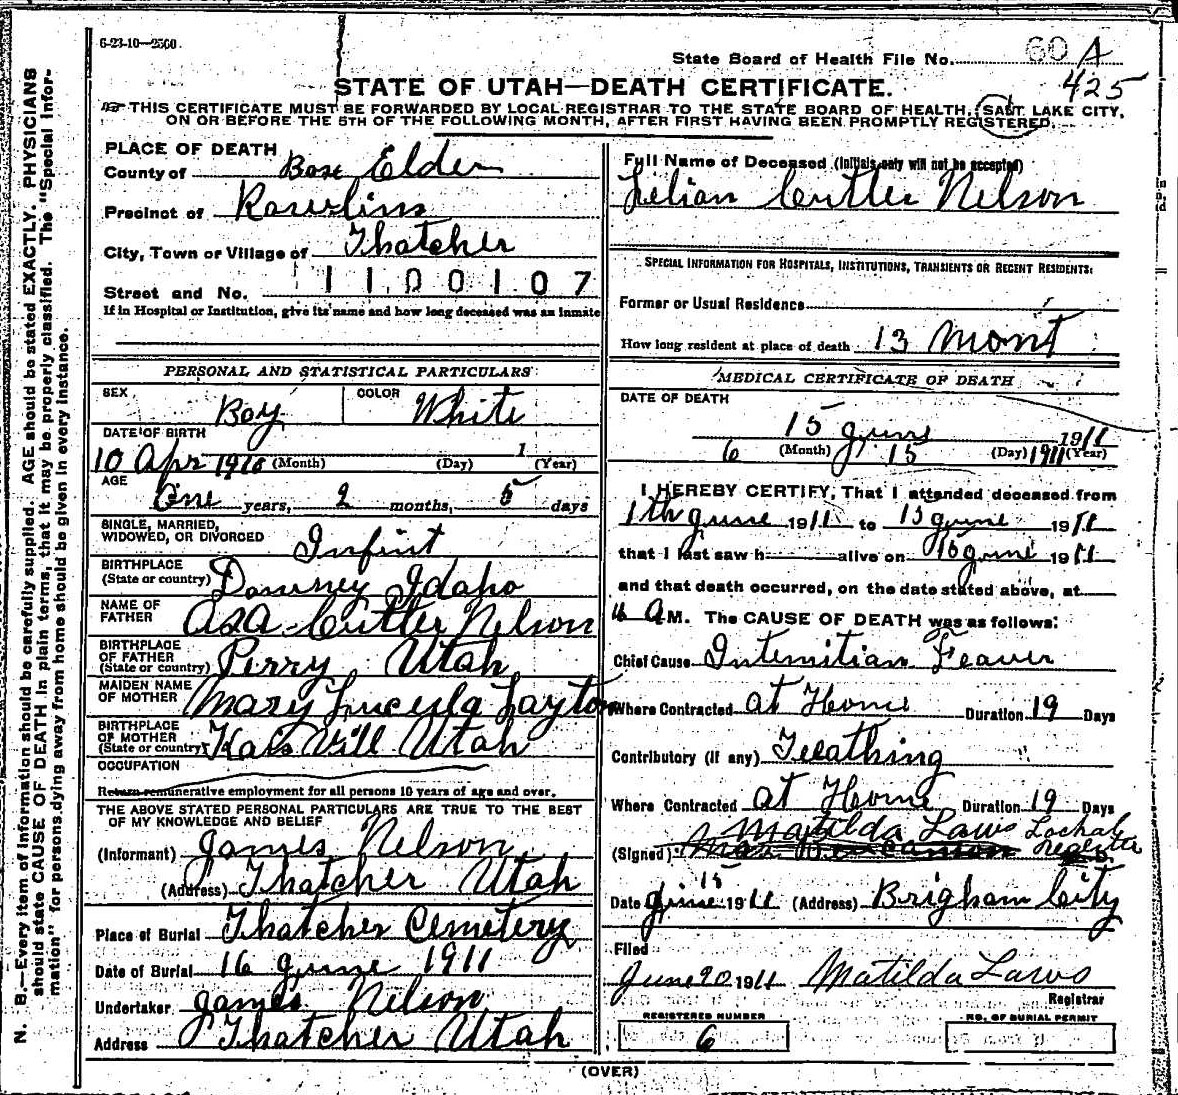 6-23-10—2500.
State Board of Health File No. 60 A
425
STATE OF UTAH—DEATH CERTIFICATE.
THIS CERTIFICATE MUST BE FORWARDED BY LOCAL REGISTRAR TO THE STATE BOARD OF HEALTH, SALT LAKE CITY,
ON OR BEFORE THE 5TH OF THE FOLLOWING MONTH, AFTER FIRST HAVING BEEN PROMPTLY REGISTERED.
N. B.—Every item of information should be carefully supplied. AGE should be stated EXACTLY. PHYSICIANS
should state CAUSE OF DEATH in plain terms, that it may be properly classified. The "Special Infor-
mation" for persons dying away from home should be given in every instance.
PLACE OF DEATH
County of Box Elder
Precinct of Rawlins
City, Town or Village of Thatcher
1100107
Street and No.
If in Hospital or Institution, give its name and how long deceased was an inmate
PERSONAL AND STATISTICAL PARTICULARS
SEX Boy COLOR White
DATE OF BIRTH
10 Apr 1910 (Month) (Day) 1 (Year)
AGE
One years, 2 months, 5 days
SINGLE, MARRIED,
WIDOWED, OR DIVORCED Infint
BIRTHPLACE
(State or country) Downey Idaho
NAME OF
FATHER Asa Cutler Nelson
BIRTHPLACE
OF FATHER
(State or country) Perry Utah
MAIDEN NAME
OF MOTHER Mary Layton
BIRTHPLACE
OF MOTHER
(State or country) Kasvill Utah
OCCUPATION
Return remunerative employment for all persons 10 years of age and over.
THE ABOVE STATED PERSONAL PARTICULARS ARE TRUE TO THE BEST
OF MY KNOWLEDGE AND BELIEF
(Informant) James Nelson
(Address) Thatcher Utah
Place of Burial Thatcher Cemetery
Date of Burial 16 June 1911
Undertaker James Nelson
Address Thatcher Utah
Full Name of Deceased (Initials only will not be accepted)
Lilian Cutler Nelson
SPECIAL INFORMATION FOR HOSPITALS, INSTITUTIONS, TRANSIENTS OR RECENT RESIDENTS:
Former or Usual Residence
How long resident at place of death 13 Mont
MEDICAL CERTIFICATE OF DEATH
DATE OF DEATH
15 June 1911
6 (Month) 15 (Day) 1911 (Year)
I HEREBY CERTIFY, That I attended deceased from
1th June 1911 to 15 June 1911
that I last saw h alive on 15 June 1911
and that death occurred, on the date stated above, at
A M. The CAUSE OF DEATH was as follows:
Chief Cause Intemitian Feaver
Where Contracted at Home Duration 19 Days
Contributory (if any) Teeathing
Where Contracted at Home Duration 19 Days
Matilda Laws Lochal
(Signed)
Date June 15 1911 (Address) Brigham City
Filed
June 20 1911 Matilda Laws
Registrar
REGISTERED NUMBER
6
NO. OF BURIAL PERMIT
(OVER)